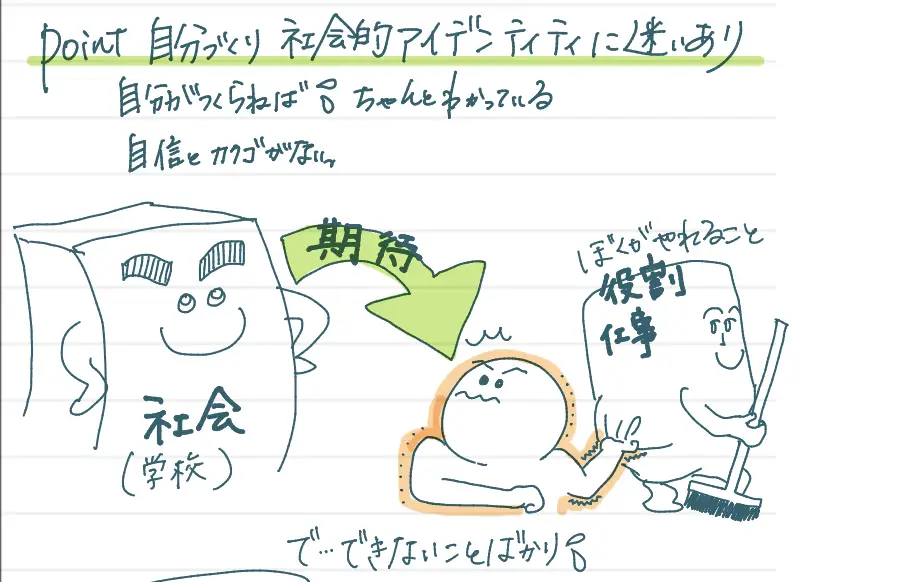 point 自分づくり 社会的アイデンティティに迷いあり
自分がつくらねば ちゃんとわかっている
自信とカクゴがないっ
期待
ぼくがやれること
役割
仕事
社会
(学校)
で…できないことばかり